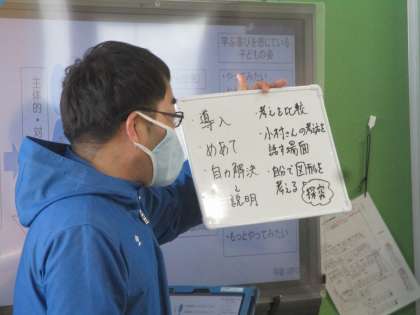 学ぶ喜びを感じている
子どもの姿
主体的・対
・導入
・めあて
・自力解決
と
説明
・考える比較
・小村さんの考えを
話す場面
・自分で図形を
考える
探究
・もっとやってみたい